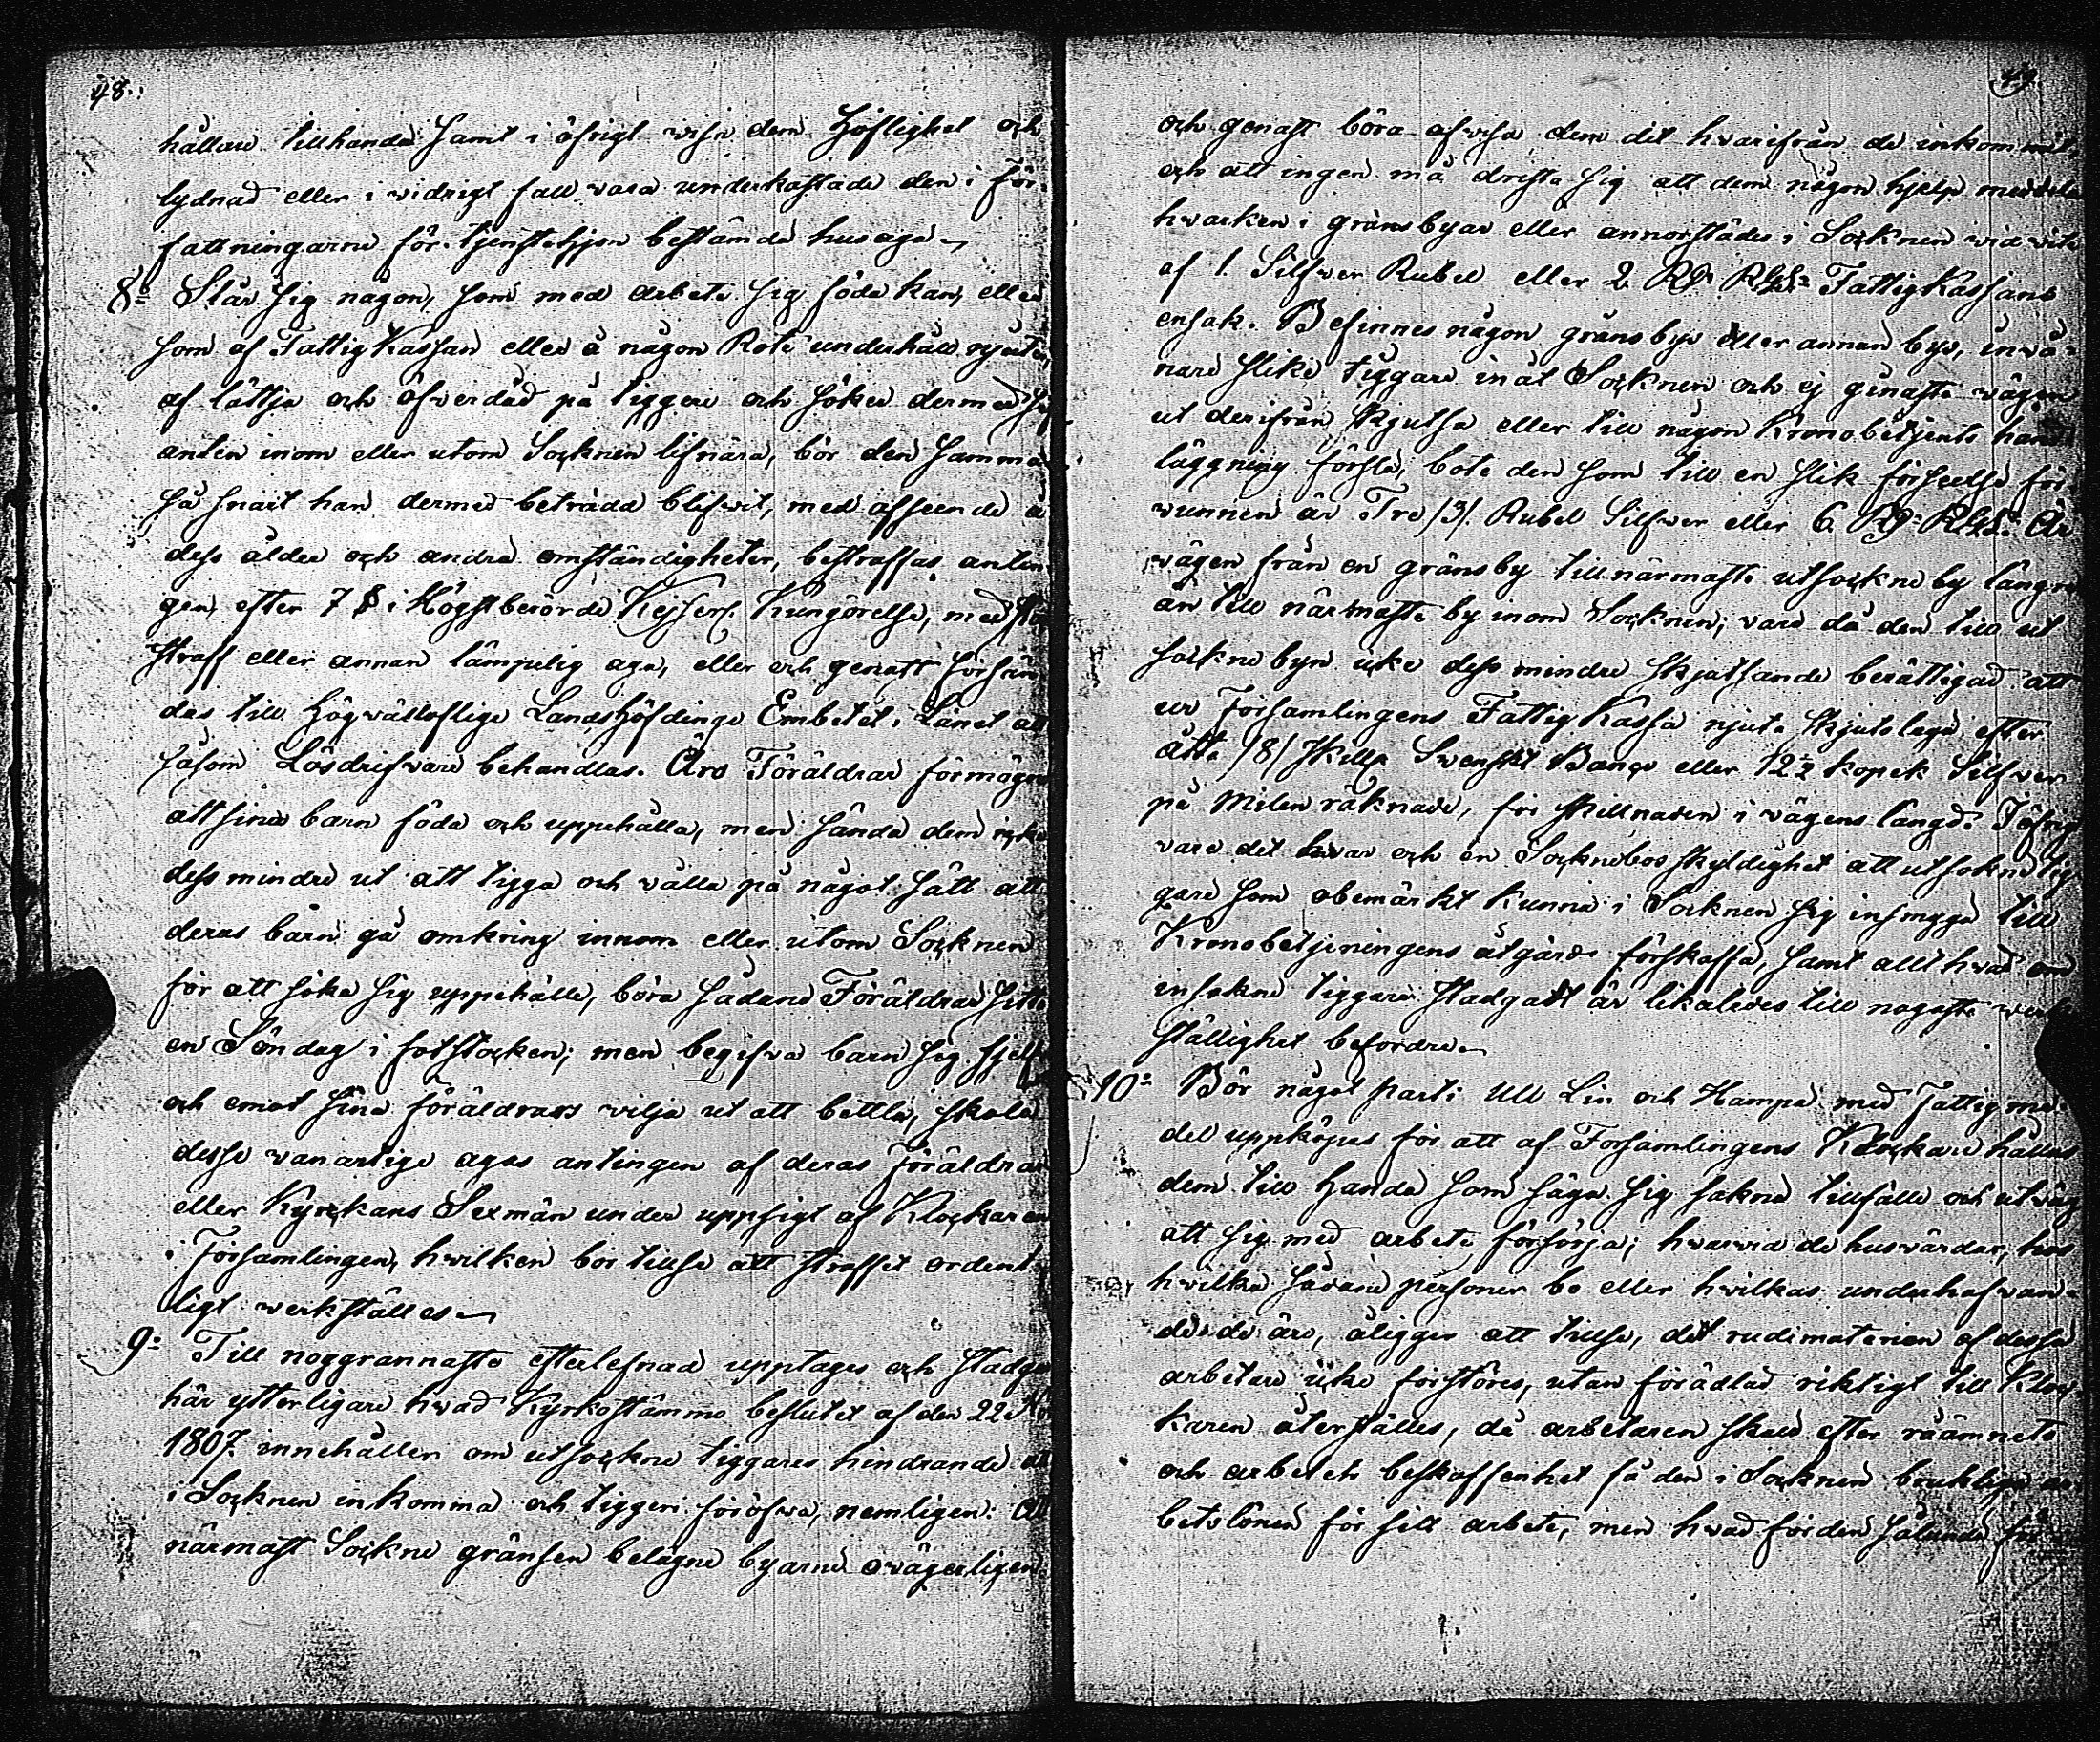 48.
hållare tillhanda samt i öfrigt visa dem Höflighet och
lydnad eller i vidrigt fall vara underkastade den i för-
fattningarne för tjenstehjon bestämda husaga
8:o Slår sig någon, som med arbete sig föda kan, eller
som af Fattig Kassan eller å någon Rote underhåll njuter,
af lättja och öfverdåd på tiggeri och söker dermed sig
anten inom eller utom Socknen lifnära, bör den samma
så snart han dermed beträdd blifvit, med afseende å
dess ålder och andra omständigheter, bestraffas antin-
gen efter 7 § i Högstberörde Kejserl. Kungörelse, med
straff eller annan lämpelig aga, eller och genast försän-
das till Högvällofliga Landshöfdinge Embetet i Länet att
såsom Lösdrifvare behandlas. Äro Föräldrar förmögne
att sina barn föda och uppehålla, men sända dem icke
dess mindre ut att tigga och vålla på något sätt att
deras barn gå omkring innom eller utom Socknen
för att söka sig uppehälle, böra sådane Föräldrar sitta
en Söndag i fotstocken; men begifva barn sig sjelfve
och emot sina föräldrars vilja ut att bettla, skola
desse vanartige agas antingen af deras föräldrar
eller Kyrckans Sexmän under uppsigt af Klockaren
i Församlingen, hvilken bör tillse att straffet ordent-
ligt werkställes
9:o Till noggrannaste efterlefnad upptages och stadgas
här ytterligare hvad Kyrkostämmo beslutet af den 22
1807 innehåller om utsockne tiggares hindrande att
i Socknen inkomma och tiggeri föröfva, nemligen: Att
närmast Sockne gränsen belägne byarne ovägerligen
49.
och genast böra afvisa dem dit hvarifrån de inkommit,
och att ingen må drista sig att dem någon hjelp meddela
hvarken i gränsbyar eller annorstädes i Socknen vid vite
af 1. Silfver Rubel eller 2 Rd. RGds. FattigKassans
ensak. Befinnes någon gränsbys eller annan bys, invå-
nare slike tiggare inåt Socknen och ej genaste vägen
ut derifrån skjutsa eller till någon Kronobetjents hand-
läggning försla, böte den som till en slik förseelse för-
vunnen är Tre /3/. Rubel Silfver eller 6 Rd. RGds. Är
vägen från en gränsby till närmaste utsockne by längre
än till närmaste by inom Socknen; vare då den till ut
sockne byn icke dess mindre skjutsande berättigad att
ur Församlingens Fattig Kassa njuta skjutslega efter
åtta /8/ skillr Svenskt Banco eller 12½ kopek Silfver
på Milen räknade, för skillnaden i vägens längd. Iöfrigt
vare det hvar och en Sockneboes skyldighet att utsokne tig-
gare som obemärkt kunna i Socknen sig insmyga till
Kronobetjeningens åtgärd förskaffa, samt allt hvad om
insokne tiggare stadgadt är likaledes till nogaste verk-
ställighet befordra
10:o Bör något parti Ull Lin och Hampa med Fattigme-
del uppköpas för att af Forsamlingens Klockare hållas
dem till handa som säga sig sakna tillfälle och utväg
att sig med arbete försörja; hvarvid de husvärdar, hos
hvilka sådane personer bo eller hvilkas underhafvan-
de de äro, åligger att tillse, det rudimaterien af desse
arbetare icke förstöres, utan förädlad riktigt till Kloc-
karen återställes, då arbetaren skall efter råämnets
och arbetets beskaffenhet få den i Socknen brukliga ar-
betslönen för sitt arbete, men hvad för den sålunda